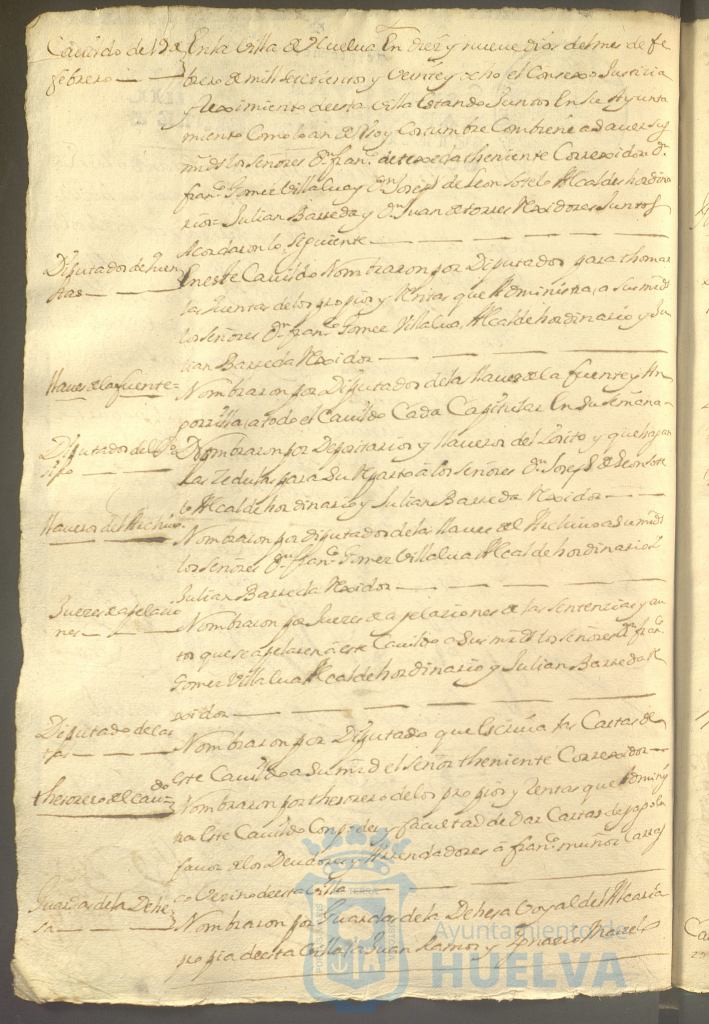 Cavildo de 19 de febrero
En la Villa de Huelva En diez y nueve dias del mes de fe
brero de mill setecientos y Veinte y ocho el Consexo Justicia
y Reximiento de esta Villa estando Juntos En su Ayunta
miento Como lo an de Uso y Costumbre Combiene a saver sus
mrds los señores Dn. franco. de texeda theniente Correxidor Dn.
franco. Gomez Villalva y Dn Joseph de Leon Sotelo Alcaldes hordina
rios = Julian Barreda y Dn Juan de torres Rexidores Juntos
Acordaron lo siguiente
Diputados de Quen
tas
En este Cavildo Nombraron por Diputados para thomar
las Quentas de los propios y Rentas que Administra, a sus mrds
los señores Dn. franco. Gomez Villalva, Alcalde hordinario y Ju
lian Barreda Rexidor
llaves de la fuente =
Nombraron por Diputados de la llave de la fuente y
a todo el Cavildo Cada Capitular En su semana
Diputados del Po
sito
Nombraron por Depositarios y llaveros del Posito y que hagan
las Zedulas para su Reparto á los señores Dn. Joseph de Leon Sote
lo Alcalde hordinario y Julian Barreda Rexidor
llaveros del Archivo
Nombraron por diputados de la llave del Archivo a sus mrds
los señores Dn. franco. Gomez Villalva Alcalde hordinario
Julian Barreda Rexidor
Juezes de apelacio
nes
Nombraron por Juezes de apelaziones de las sentencias y au
tos que se apelaren á este Cavildo a sus mrds los señores Dn. franco.
Gomez Villalva Alcalde hordinario y Julian Barreda R
exidor
Diputado de Car
tas
Nombraron por Diputado que Escriva las Cartas de
Este Cavildo a su mrd el señor theniente Correxidor
thesorero del Cavdo
Nombraron por thesorero de los propios y Rentas que Adminis
tra Este Cavildo Con poder y facultad de dar Cartas de pago a
favor de los Deudores y Arrendadores á franco. muñoz Carras
co Vezino de esta Villa
Guardas de la Dehe
sa
Nombraron por Guardas de la Dehesa Boyal del Alcaria
propia de esta Villa, a Juan Ramos y
Ayuntamiento de
HUELVA